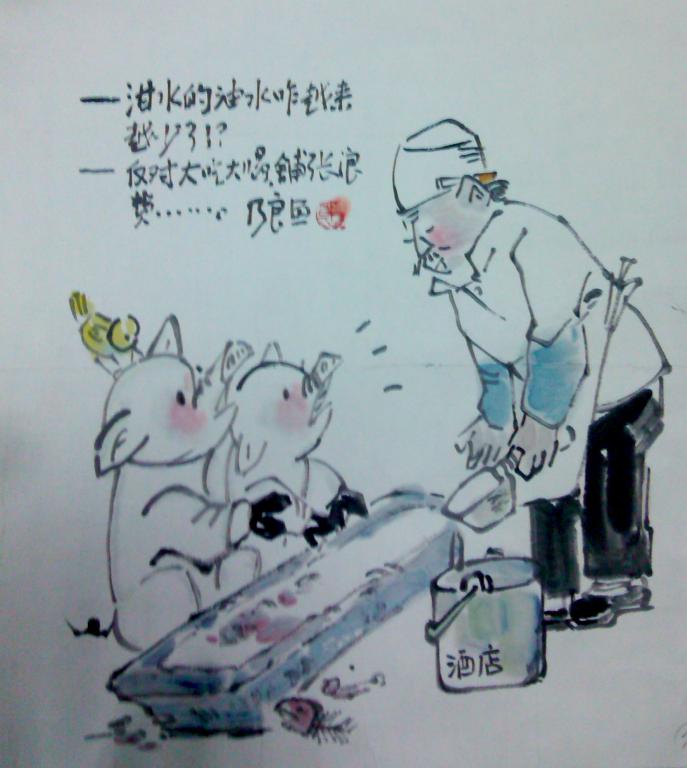 — 泔水的油水咋越来
越少了!?
— 反对大吃大喝,铺张浪
费……。 乃良画
酒店